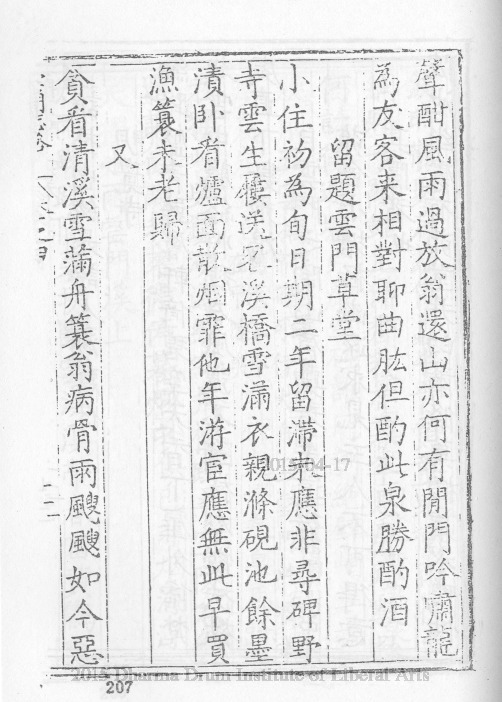 聲酣風雨過放翁還山亦何有閒門吟嘯龍
為友客来相對聊曲肱但酌此泉勝酌酒
留題雲門草堂
小住初為旬日期二年留滯未應非尋碑野
寺雲生屨送客溪橋雪滿衣親滌硯池餘墨
漬卧看爐面散烟霏他年游宦應無此早買
漁蓑未老歸
又
貧看清溪雪滿舟蓑翁病骨雨颼颼如今惡
2015-04-17
2015 Dharma Drum Institute of Liberal Arts
207